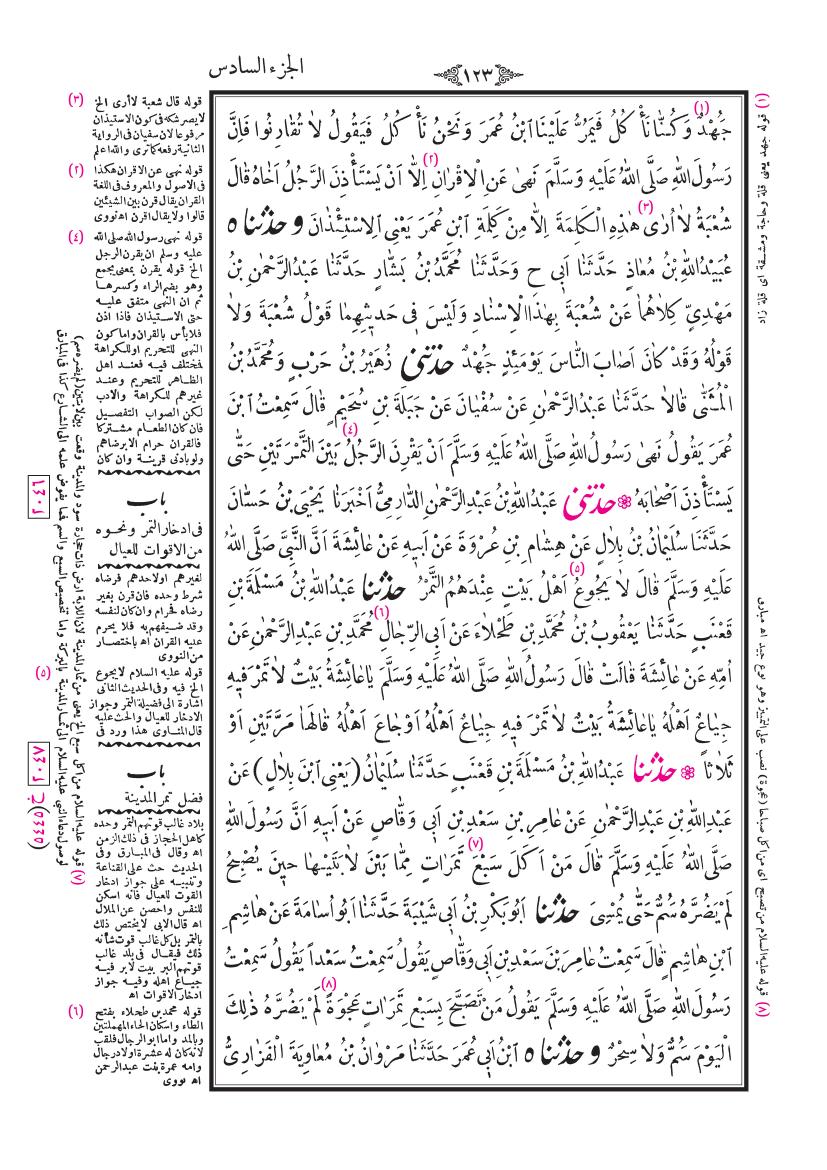 الجزء السادس
١٢٣
جُهْدٌ وَكُنَّا نَأْكُلُ فَيَمُرُّ عَلَيْنَا ابْنُ عُمَرَ وَنَحْنُ نَأْكُلُ فَيَقُولُ لَا تُقَارِنُوا فَإِنَّ
رَسُولَ اللّٰهِ صَلَّى اللّٰهُ عَلَيْهِ وَسَلَّمَ نَهَى عَنِ الْاِقْرَانِ اِلَّا اَنْ يَسْتَأْذِنَ الرَّجُلُ اَخَاهُ قَالَ
شُعْبَةُ لَا اُرَى هٰذِهِ الْكَلِمَةَ اِلَّا مِنْ كَلِمَةِ ابْنِ عُمَرَ يَعْنِى الِاسْتِئْذَانَ وحدثناه
عُبَيْدُ اللّٰهِ بْنُ مُعَاذٍ حَدَّثَنَا اَبِى ح وَحَدَّثَنَا مُحَمَّدُ بْنُ بَشَّارٍ حَدَّثَنَا عَبْدُ الرَّحْمٰنِ بْنُ
مَهْدِىٍّ كِلَاهُمَا عَنْ شُعْبَةَ بِهٰذَا الْاِسْنَادِ وَلَيْسَ فِى حَدِيثِهِمَا قَوْلُ شُعْبَةَ وَلَا
قَوْلُهُ وَقَدْ كَانَ اَصَابَ النَّاسَ يَوْمَئِذٍ جُهْدٌ حدثنى زُهَيْرُ بْنُ حَرْبٍ وَمُحَمَّدُ بْنُ
الْمُثَنَّى قَالَا حَدَّثَنَا عَبْدُ الرَّحْمٰنِ عَنْ سُفْيَانَ عَنْ جَبَلَةَ بْنِ سُحَيْمٍ قَالَ سَمِعْتُ ابْنَ
عُمَرَ يَقُولُ نَهَى رَسُولُ اللّٰهِ صَلَّى اللّٰهُ عَلَيْهِ وَسَلَّمَ اَنْ يَقْرِنَ الرَّجُلُ بَيْنَ التَّمْرَتَيْنِ حَتَّى
يَسْتَأْذِنَ اَصْحَابَهُ حدثنى عَبْدُ اللّٰهِ بْنُ عَبْدِ الرَّحْمٰنِ الدَّارِمِىُّ اَخْبَرَنَا يَحْيَى بْنُ حَسَّانَ
حَدَّثَنَا سُلَيْمَانُ بْنُ بِلَالٍ عَنْ هِشَامِ بْنِ عُرْوَةَ عَنْ اَبِيهِ عَنْ عَائِشَةَ اَنَّ النَّبِىَّ صَلَّى اللّٰهُ
عَلَيْهِ وَسَلَّمَ قَالَ لَا يَجُوعُ اَهْلُ بَيْتٍ عِنْدَهُمُ التَّمْرُ حدثنا عَبْدُ اللّٰهِ بْنُ مَسْلَمَةَ بْنِ
قَعْنَبٍ حَدَّثَنَا يَعْقُوبُ بْنُ مُحَمَّدِ بْنِ طَحْلَاءَ عَنْ اَبِى الرِّجَالِ مُحَمَّدِ بْنِ عَبْدِ الرَّحْمٰنِ عَنْ
اُمِّهِ عَنْ عَائِشَةَ قَالَتْ قَالَ رَسُولُ اللّٰهِ صَلَّى اللّٰهُ عَلَيْهِ وَسَلَّمَ يَا عَائِشَةُ بَيْتٌ لَا تَمْرَ فِيهِ
جِيَاعٌ اَهْلُهُ يَا عَائِشَةُ بَيْتٌ لَا تَمْرَ فِيهِ جِيَاعٌ اَهْلُهُ اَوْ جَاعَ اَهْلُهُ قَالَهَا مَرَّتَيْنِ اَوْ
ثَلَاثًا حدثنا عَبْدُ اللّٰهِ بْنُ مَسْلَمَةَ بْنِ قَعْنَبٍ حَدَّثَنَا سُلَيْمَانُ (يَعْنِى ابْنَ بِلَالٍ) عَنْ
عَبْدِ اللّٰهِ بْنِ عَبْدِ الرَّحْمٰنِ عَنْ عَامِرِ بْنِ سَعْدِ بْنِ اَبِى وَقَّاصٍ عَنْ اَبِيهِ اَنَّ رَسُولَ اللّٰهِ
صَلَّى اللّٰهُ عَلَيْهِ وَسَلَّمَ قَالَ مَنْ اَكَلَ سَبْعَ تَمَرَاتٍ مِمَّا بَيْنَ لَابَتَيْهَا حِينَ يُصْبِحُ
لَمْ يَضُرَّهُ سُمٌّ حَتَّى يُمْسِىَ حدثنا اَبُو بَكْرِ بْنُ اَبِى شَيْبَةَ حَدَّثَنَا اَبُو اُسَامَةَ عَنْ هَاشِمِ
ابْنِ هَاشِمٍ قَالَ سَمِعْتُ عَامِرَ بْنَ سَعْدِ بْنِ اَبِى وَقَّاصٍ يَقُولُ سَمِعْتُ سَعْداً يَقُولُ سَمِعْتُ
رَسُولَ اللّٰهِ صَلَّى اللّٰهُ عَلَيْهِ وَسَلَّمَ يَقُولُ مَنْ تَصَبَّحَ بِسَبْعِ تَمَرَاتٍ عَجْوَةً لَمْ يَضُرَّهُ ذٰلِكَ
الْيَوْمَ سُمٌّ وَلَا سِحْرٌ وحدثناه ابْنُ اَبِى عُمَرَ حَدَّثَنَا مَرْوَانُ بْنُ مُعَاوِيَةَ الْفَزَارِىُّ
(٣) قوله قال شعبة لا أرى الخ
لا يضر شكه فى كون الاستيذان
مرفوعا لان سفيان فى الرواية
الثانية رفعه كما ترى والله اعلم
(٢) قوله نهى عن الاقران هكذا
فى الاصول والمعروف فى اللغة
القران يقال قرن بين الشيئين
قالوا ولا يقال اقرن اه نووى
(٤) قوله نهى رسول الله صلى الله
عليه وسلم ان يقرن الرجل
الخ قوله يقرن بمعنى يجمع
وهو بضم الراء وكسرها
ثم ان النهى متفق عليه
حتى الاستيذان فاذا اذن
فلا بأس بالقران واما كون
النهى للتحريم او للكراهة
فمختلف فيه فعند اهل
الظاهر للتحريم وعند
غيرهم للكراهة والادب
لكن الصواب التفصيل
فان كان الطعام مشتركا
فالقران حرام الا برضاهم
ولو بادنى قرينة وان كان
باب
فى ادخار التمر ونحوه
من الاقوات للعيال
لغيرهم اولاحدهم فرضاه
شرط وحده فان قرن بغير
رضاه فحرام وان كان لنفسه
وقد ضيفهم به فلا يحرم
عليه القران اه باختصار
من النووى
(٥) قوله عليه السلام لا يجوع
الخ فيه وفى الحديث الثانى
اشارة الى فضيلة التمر وجواز
الادخار للعيال والحث عليه
قال المناوى هذا ورد فى
باب
فضل تمر المدينة
بلاد غالب قوتهم التمر وحده
كاهل الحجاز فى ذلك الزمن
اه وقال فى المبارق وفى
الحديث حث على القناعة
وتنبيه على جواز ادخار
القوت للعيال فانه اسكن
للنفس واحصن عن الملال
اه قال الابى لا يختص ذلك
بالتمر بل كل غالب قوت شأنه
ذلك فيقال فى بلد غالب
قوتهم البر بيت لا بر فيه
جياع اهله وفيه جواز
ادخار الاقوات اه
(٦) قوله محمد بن طحلاء بفتح
الطاء واسكان الحاء المهملتين
وبالمد واما ابو الرجال فلقب
لانه كان له عشرة اولاد رجال
وامه عمرة بنت عبدالرحمن
اه نووى
(١) قوله جهد يعنى قلة وحاجة ومشقة اى قلة زاد
(٨) قوله عليه السلام من تصبح اى من اكل صباحا (عجوة) نصب على التمييز وهو نوع جيد اه مبارق
(٧) قوله عليه السلام من اكل سبع الخ يعنى من ثمار المدينة لان اللابة ارض ذات حجارة سود والمدينة وقعت بين لابتين (لم يضره سم)
لوصول دعاء النبى عليه السلام الى ثمار المدينة بالبركة واما تخصيص السبع والسم فما يفوض علمه الى الشارع كذا فى المبارق